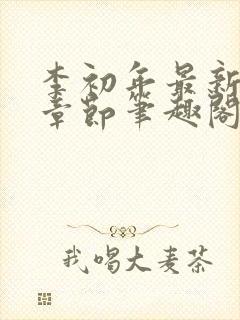 李初年最新
章節筆趣閣
我喝大麦茶